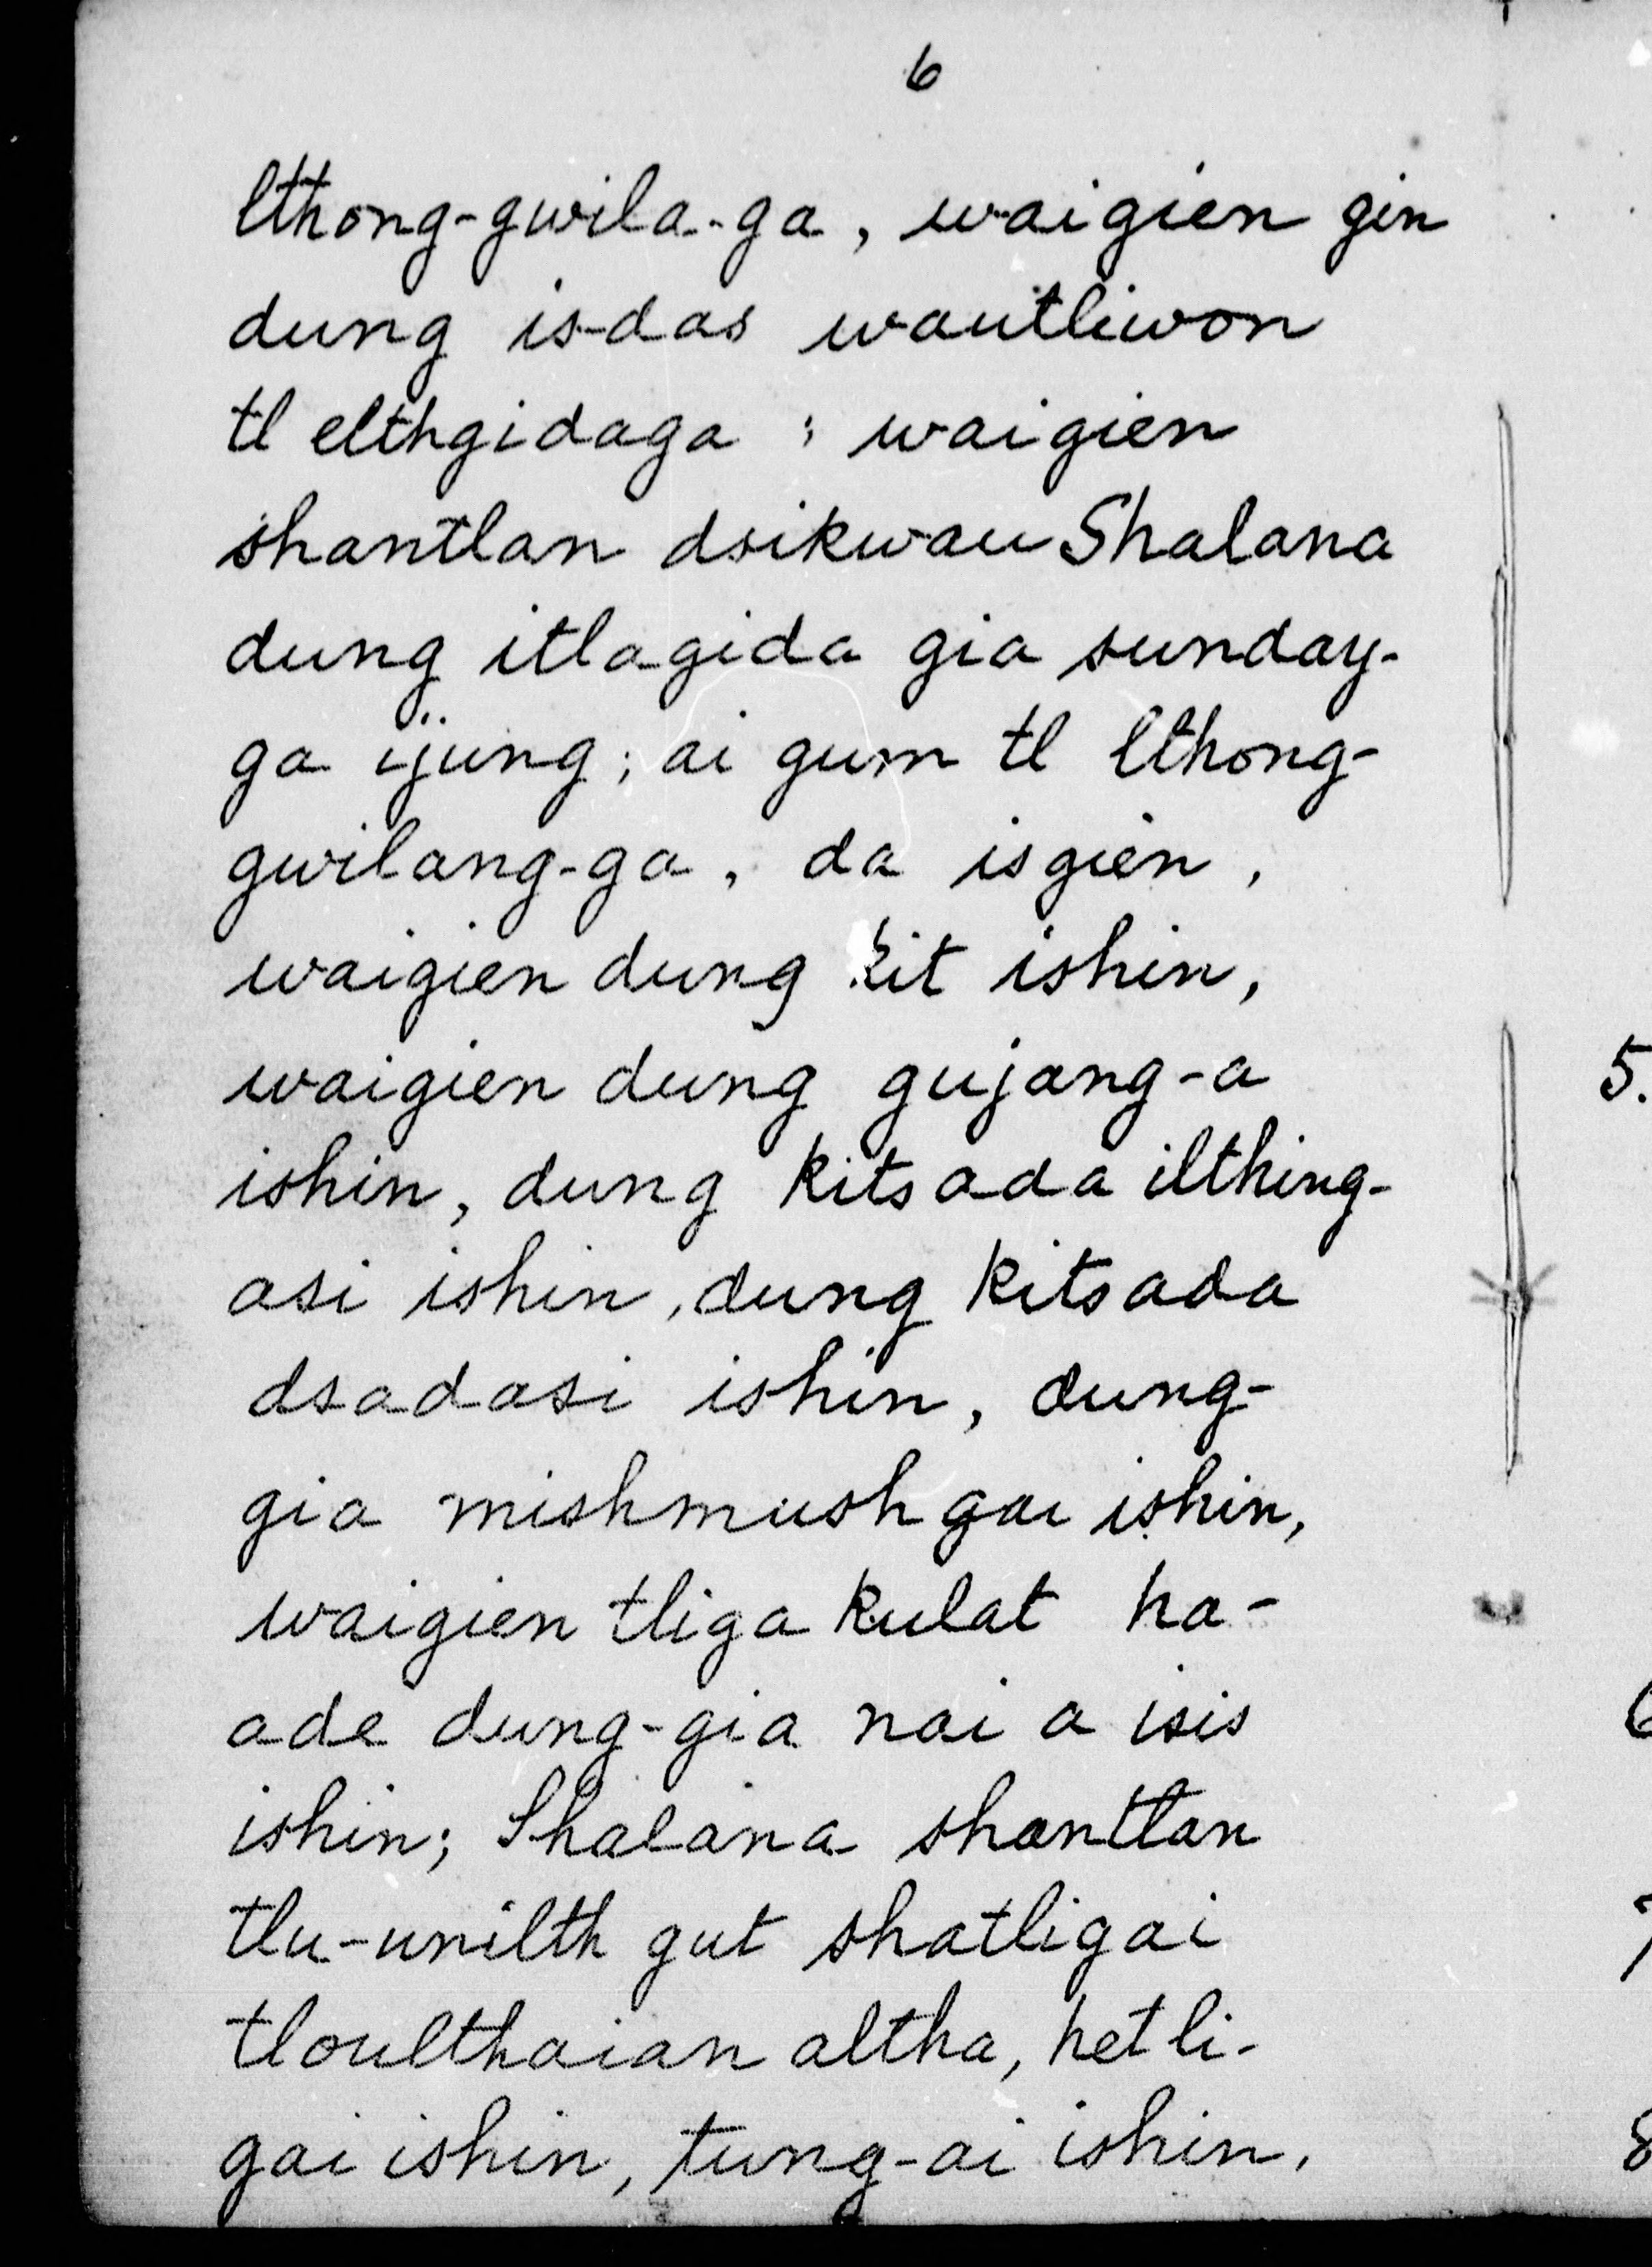 6
lthong-gwila-ga, waigien gin
dung is-das wautliwon
tl elthgidaga; waigien
shantlan dsikwau Shalana
dung itlagida gia sunday-
ga ijung; ai gum tl lthong-
gwilang-ga, da isgien,
waigien dung kit ishin,
waigien dung gujang-a
ishin, dung kitsada ilthing-
asi ishin, dung kitsada
dsadasi ishin, dung-
gia mishmush gai ishin,
waigien tliga kulat ha-
ade dung-gia nai a isis
ishin; Shalana shantlan
tlu-unilth gut shatligai
tloulthaian altha, hetli-
gai ishin, tung-ai ishin,
5.
6
7
8